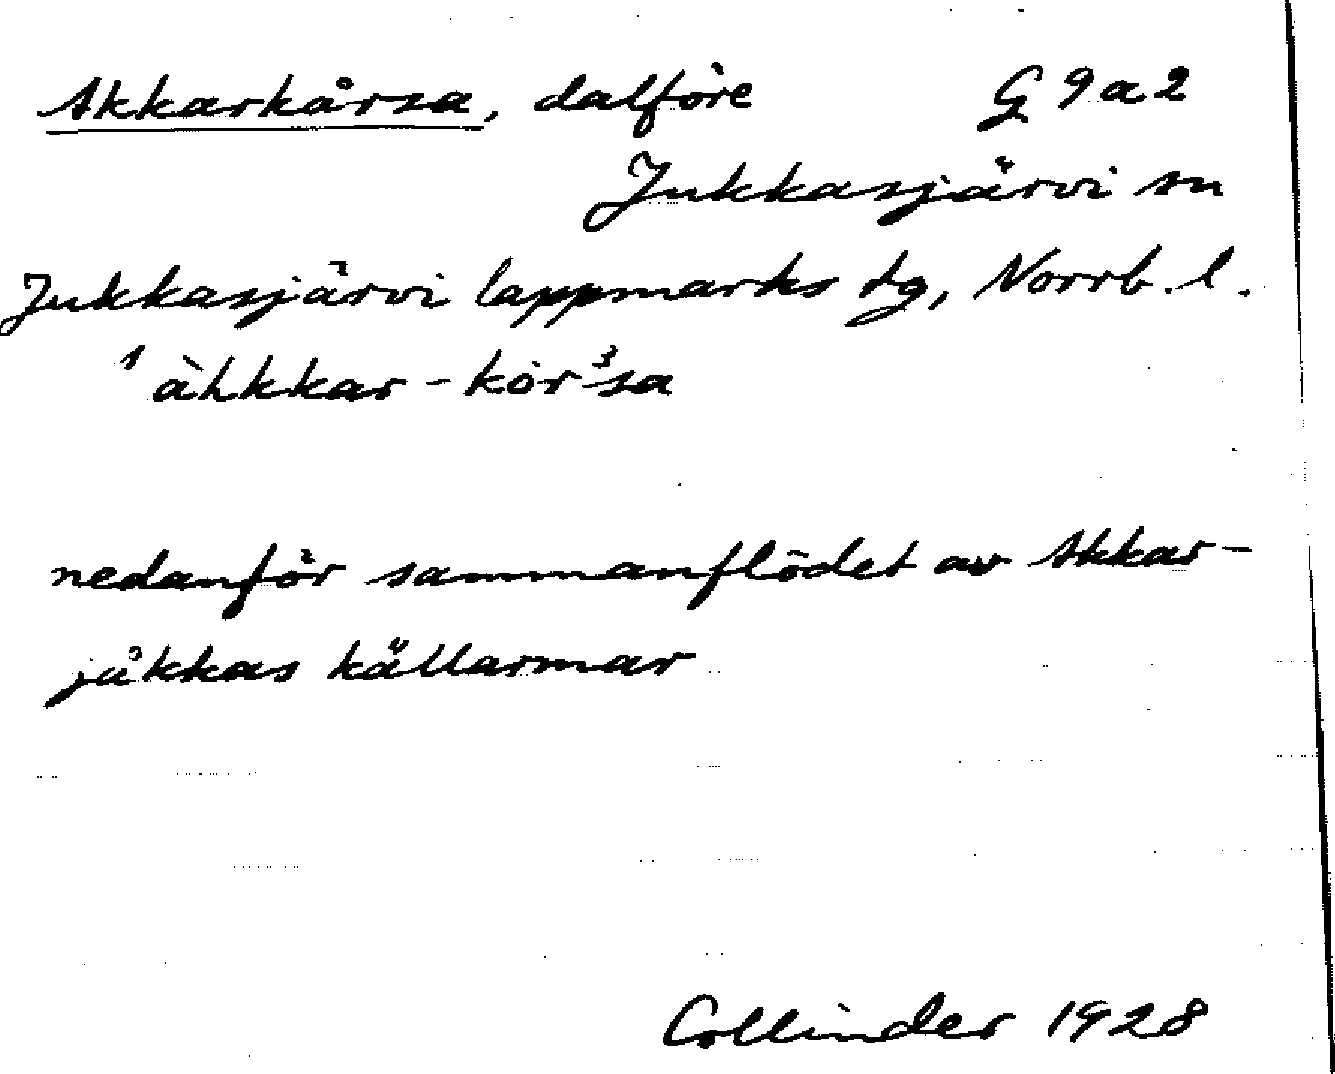 Akkarkårsa, dalföre G 9 a 2
Jukkasjärvi sn
Jukkasjärvi lappmarks tg, Norrb. l.
¹àhkkar-kòr³sa
nedanför sammanflödet av Akkar-
jåkkas källarmar
Collinder 1928